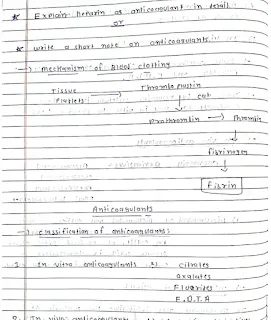 * Explain heparin as anticoagulant in detail.
or
* write a short note on anticoagulants.
→ mechanism of Blood clotting
Tissue → Thromboplastin
Platlets ↓ Ca++
Prothrombin → Thrombin
↓
fibrinogen
↓
Fibrin
Anticoagulants
→ classification of anticoagulants:
1. In vitro anticoagulants → citrates
Oxalates
Fluorides
E.D.T.A
2. In vivo anticoagulants